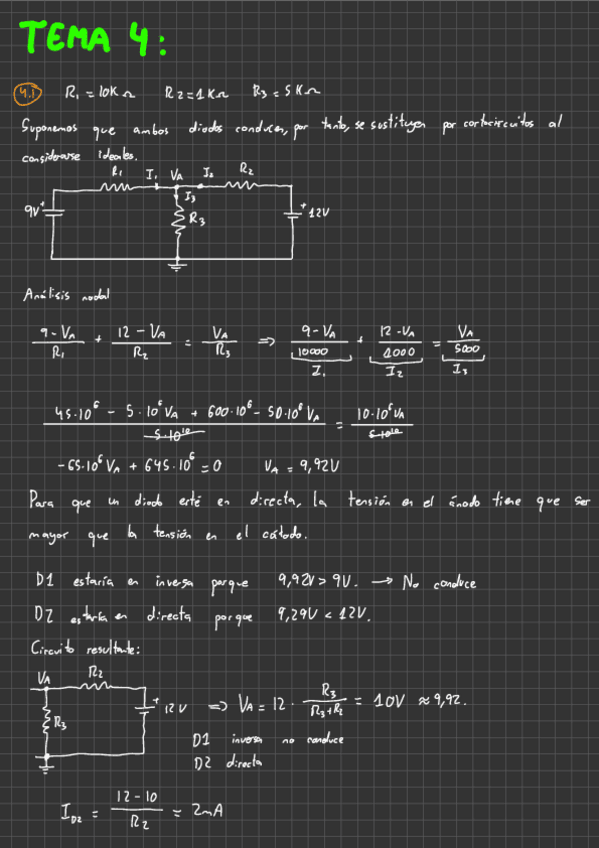 TEMA 4:
4.1 R₁ = 10KΩ R₂ = 1KΩ R₃ = 5KΩ
Suponemos que ambos diodos conducen, por tanto, se sustituyen por cortocircuitos al
considerarse ideales.
R₁ I₁ VA I₂ R₂
I₃
9V + R₃ + 12V
Análisis nodal
(9 - VA)/R₁ + (12 - VA)/R₂ = VA/R₃ => (9 - VA)/10000 + (12 - VA)/1000 = VA/5000
I₁ I₂ I₃
(45·10⁶ - 5·10⁶VA + 600·10⁶ - 50·10⁶VA)/5·10¹⁰ = 10·10⁶VA/5·10¹⁰
-65·10⁶VA + 645·10⁶ = 0 VA = 9,92V
Para que un diodo esté en directa, la tensión en el ánodo tiene que ser
mayor que la tensión en el cátodo.
D1 estaría en inversa porque 9,92V > 9V. → No conduce
D2 estaría en directa porque 9,29V < 12V.
Circuito resultante:
VA R₂
R₃ + 12V => VA = 12 · R₃/(R₃+R₂) = 10V ≈ 9,92.
D1 inversa no conduce
D2 directa
I_D2 = (12 - 10)/R₂ = 2mA